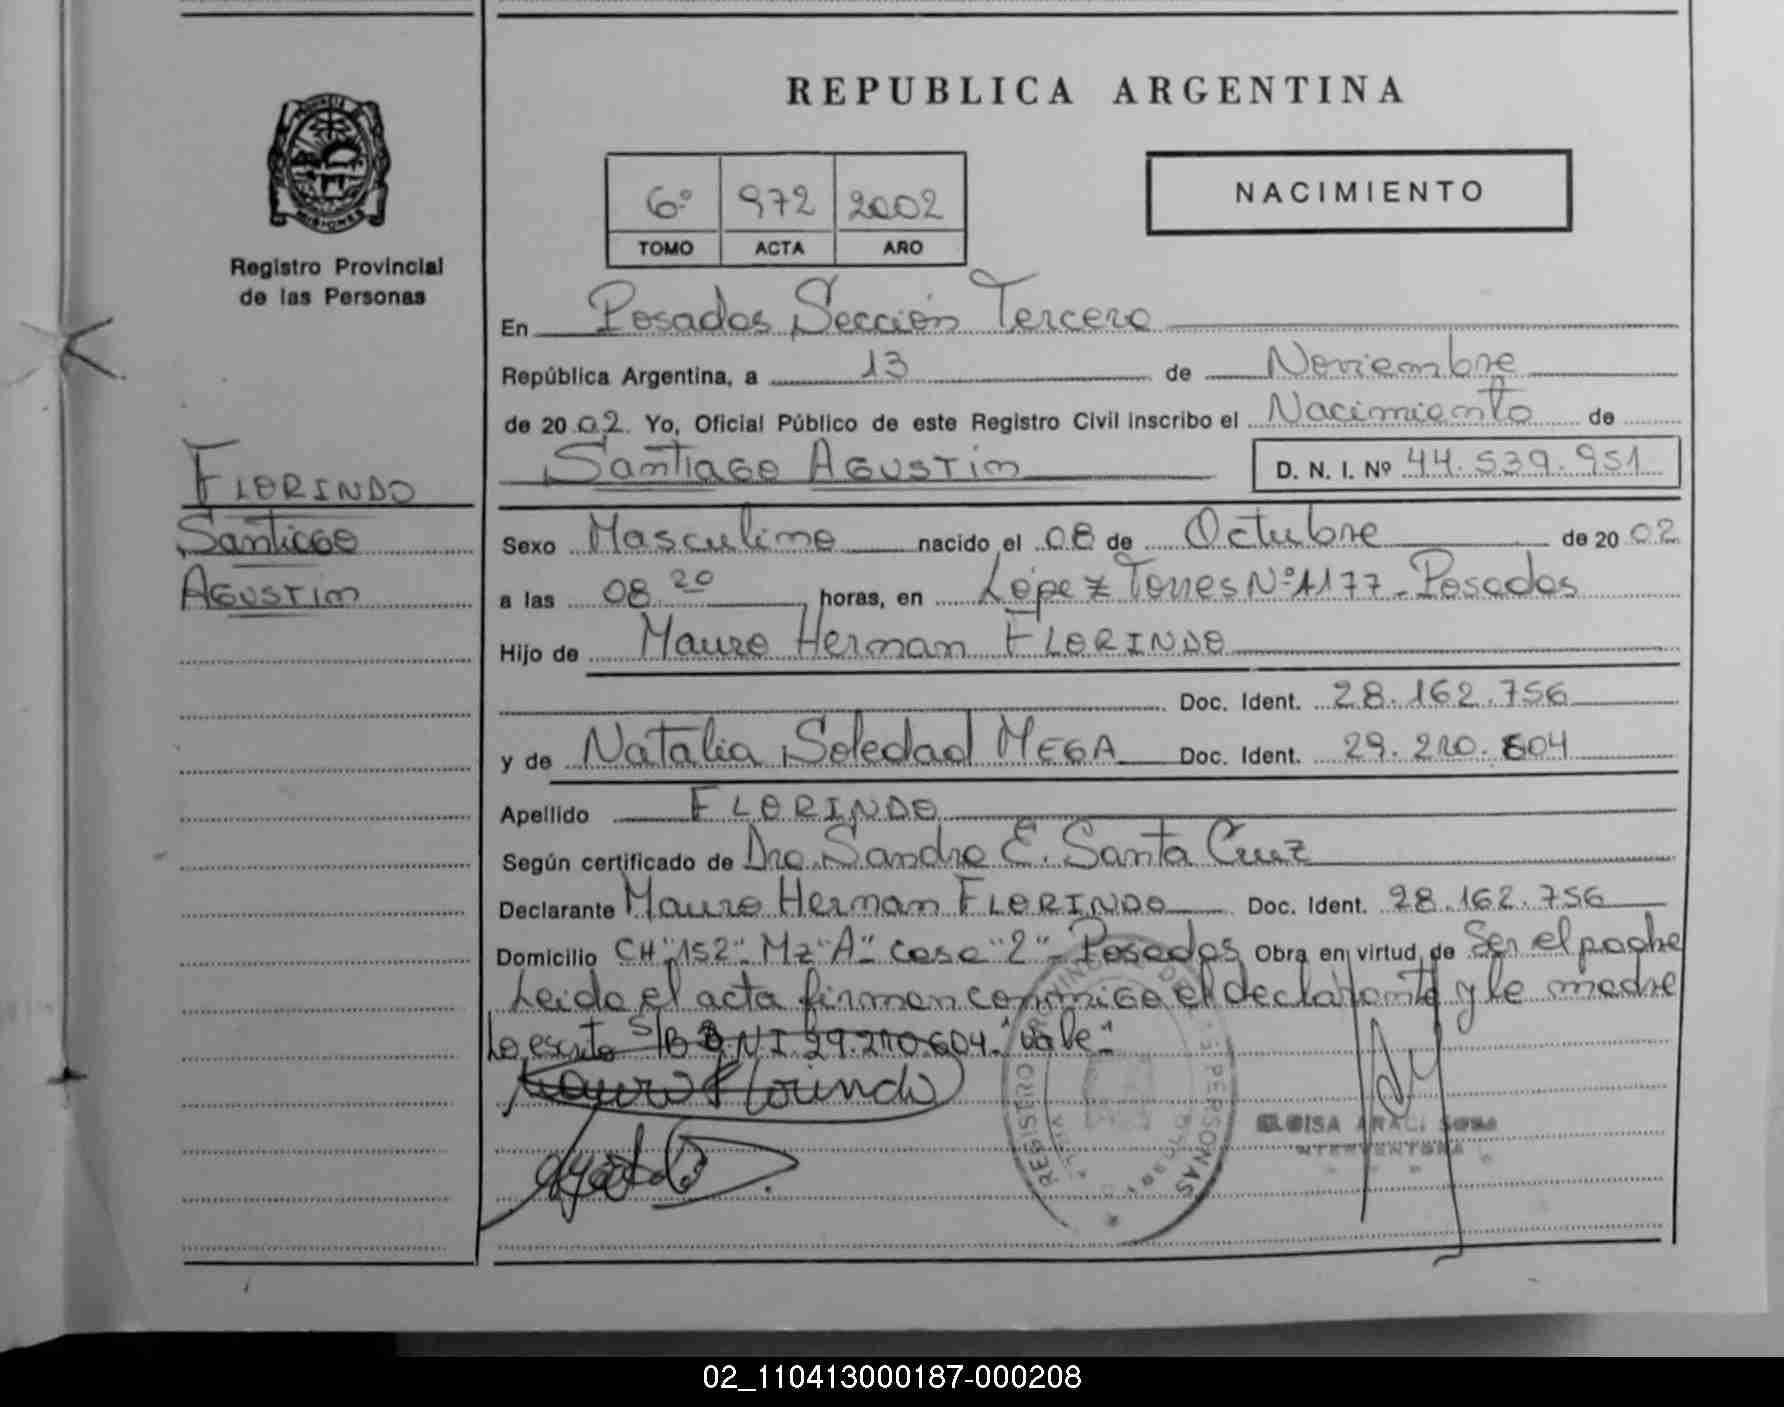 REPUBLICA ARGENTINA
6º 972 2002
TOMO ACTA AÑO
NACIMIENTO
MISIONES
Registro Provincial
de las Personas
En Posadas Sección Tercera
República Argentina, a 13 de Noviembre
de 2002. Yo, Oficial Público de este Registro Civil inscribo el Nacimiento de
Santiago Agustin D. N. I. Nº 44.539.951
FLORINDO
Santiago
Agustin
Sexo Masculino nacido el 08 de Octubre de 2002
a las 08.20 horas, en López Torres Nº 1177 - Posadas
Hijo de Mauro Hernan FLORINDO
Doc. Ident. 28.162.756
y de Natalia Soledad MEGA Doc. Ident. 29.210.604
Apellido FLORINDO
Según certificado de Dra. Sandra E. Santa Cruz
Declarante Mauro Hernan FLORINDO Doc. Ident. 28.162.756
Domicilio CH "152" Mz "A" casa "2" - Posadas Obra en virtud de Ser el padre
Leida el acta firman conmigo el declarante y la madre
Lo escrito S/B DNI 29.210.604. "Vale"
Mauro Florindo
REGISTRO PROVINCIAL DE LAS PERSONAS
ELOISA ARACI SOSA
INTERVENTORA
02_110413000187-000208